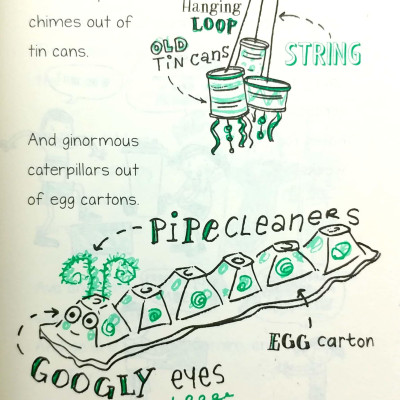 Hanging
LOOP
chimes out of
tin cans.
OLD
TiN Cans
STRING
And ginormous
caterpillars out
of egg cartons.
PiPECLEANERS
EGG carton
GOOGLY eyes